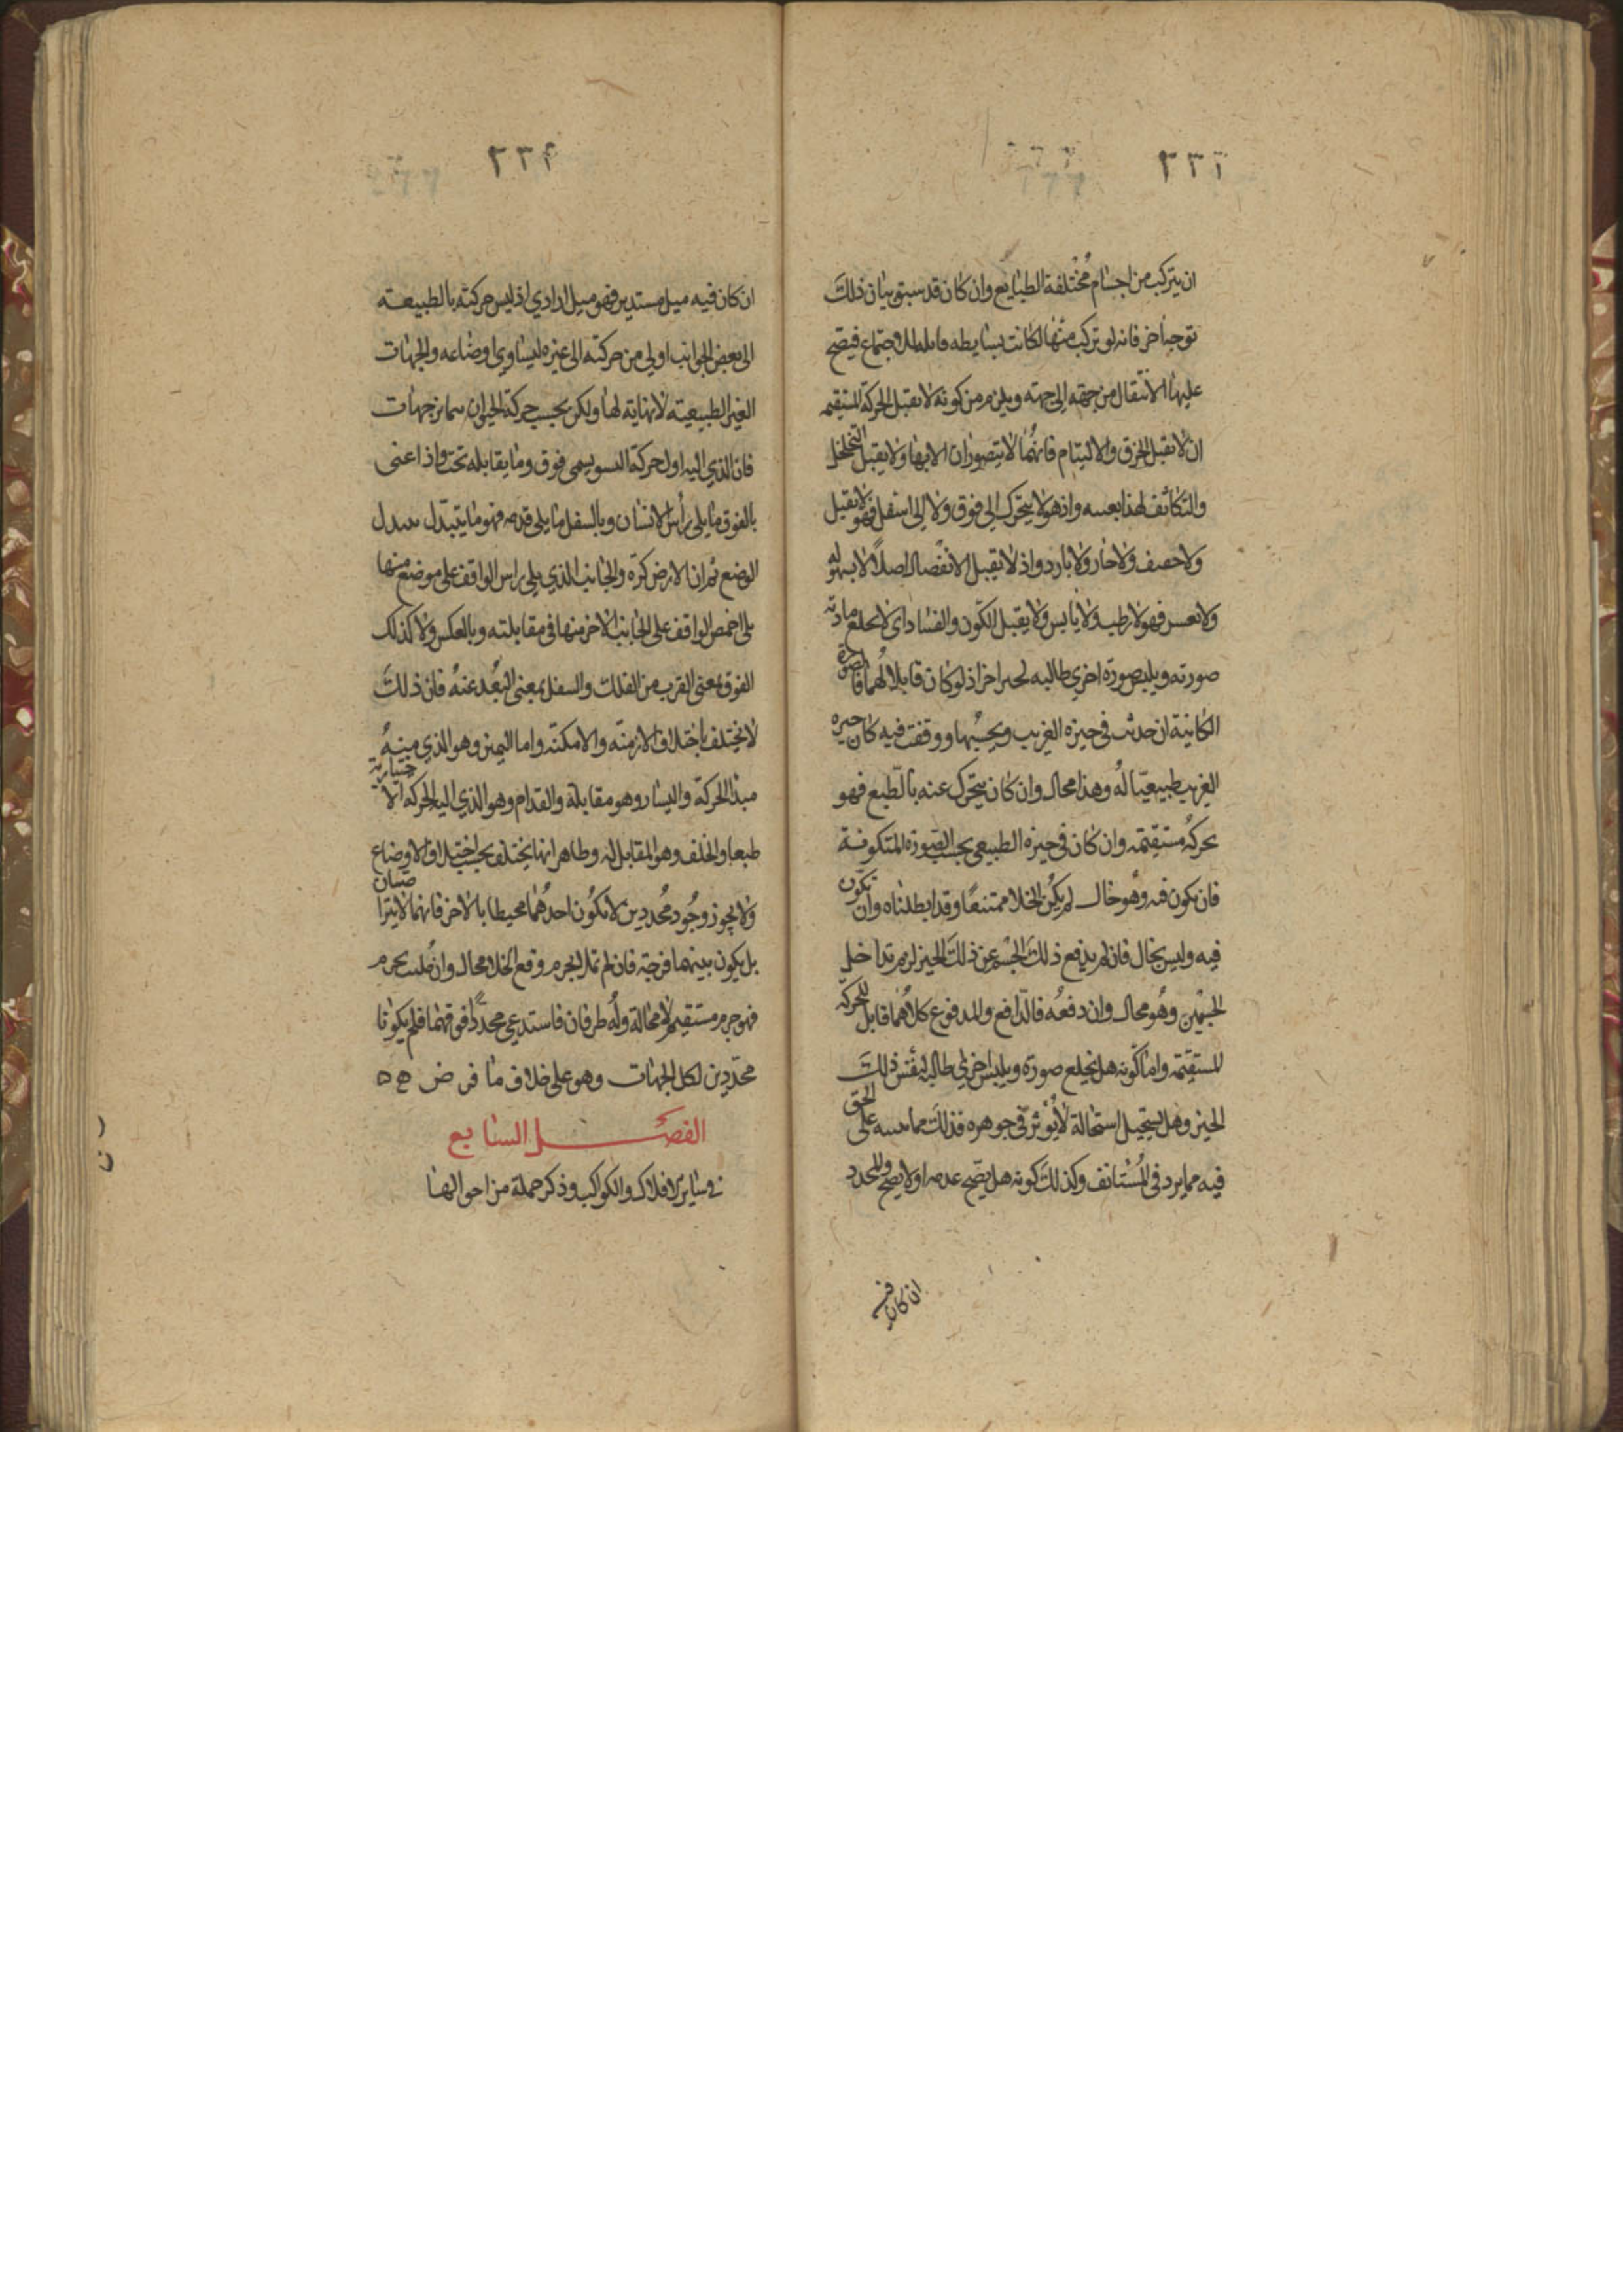 ٢٣٣
ان يتركب من اجسام مختلفة الطبايع وان كان قد سبق بيان ذلك
بوجه اخر فانه لو تركب منها لكانت بسايطه قابلة للاجتماع فيصح
عليها الانتقال من جهة الى جهة ويلزم من كونه لا يقبل الحركة المستقيمه
ان لا يقبل الخرق والالتيام فانهما لا يتصوران الا بها ولا يقبل التخلخل
والتكاثف لهذا بعينه واذ هو لا يتحرك الى فوق ولا الى اسفل فهو لا ثقيل
ولا خفيف ولا حار ولا بارد واذ لا يقبل الانفصال اصلا لا بسهولة
ولا بعسر فهو لا رطب ولا يابس ولا يقبل الكون والفساد اى لا يخلع مادته
صورته ويلبس صورة اخرى طالبه لحيز اخر اذ لو كان قابلا لهما فالصورة
الكاينة ان حدثت في حيزه الغريب وبحسبها ووقفت فيه كان حيزه
الغريب طبيعيا له وهذا محال وان كان يتحرك عنه بالطبع فهو
بحركة مستقيمه وان كان في حيزه الطبيعي بحسب الصورة المتكونة
فان تكون فيه وهو خال لم يكن الخلا ممتنعا وقد ابطلناه وان تكون
فيه وليس بخال فان لم يدفع ذلك الجسم عن ذلك الحيز لزم تداخل
الجسمين وهو محال وان دفعه فالدافع والمدفوع كلاهما قابل للحركة
المستقيمه واما كونه هل يخلع صورة ويلبس اخرى طالبه لنفس ذلك
الحيز وهل يستحيل استحالة لا يؤثر في جوهره فذلك مما ننبه على الحق
فيه مما يرد في المستانف وكذلك كونه هل يصح عدمه اولا يصح والمحدد
ان كان فيه
٢٣٤
ان كان فيه ميل مستدير فهو ميل ارادي اذ ليس حركته بالطبيعة
الى بعض الجوانب اولى من حركته الى غيره ليساوي اوضاعه والجهات
الغير الطبيعيه لا نهاية لها ولكن بحسب حركة الحيوان يتمايز جهات
فان الذي اليه اول حركة النشو يسمى فوق وما يقابله تحت واذا عنى
بالفوق ما يلي رأس الانسان وبالسفل ما يلي قدمه فهو ما يتبدل بتبدل
الوضع ثم ان الارض كرة والجانب الذي يلي راس الواقف على موضع منها
يلي اخمص الواقف على الجانب الاخر منها في مقابلته وبالعكس ولا كذلك
الفوق بمعنى القرب من الفلك والسفل بمعنى البعد عنه فان ذلك
لا يختلف باختلاف الازمنة والامكنة واما اليمين وهو الذي منه
مبدأ الحركة واليسار وهو مقابله والقدام وهو الذي اليه الحركة الاختيارية
طبعا والخلف وهو المقابل له وظاهر انها يختلف بحسب اختلاف الاوضاع
ولا يجوز وجود محددين لا يكون احدهما محيطا بالاخر فانهما لا يتراصان
بل يكون بينهما فرجة فان لم تملا بجرم وقع الخلا محال وان ملئت بجرم
فهو جرم مستقيم لا محالة وله طرفان فاستدعى محددا فوقهما فلم يكونا
محددين لكل الجهات وهو على خلاف ما فرض
الفصل السابع
في ساير الافلاك والكواكب وذكر جملة من احوالها